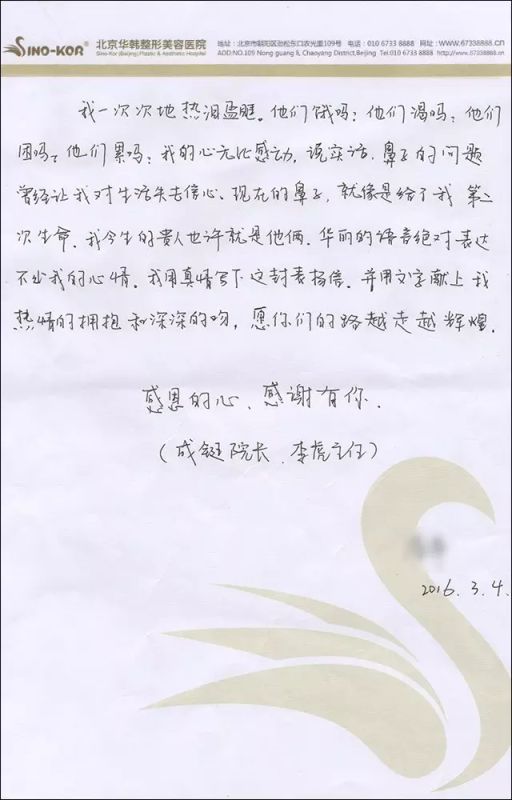 SINO-KOR® 北京华韩整形美容医院 地址：北京市朝阳区劲松东口农光里109号 电话：010 6733 8888 网址：www.67338888.cn
Sino-Kor (Beijing) Plastic & Aesthetic Hospital ADD:NO.109 Nong guang li, Chaoyang District,Beijing Tel:010 6733 8888 Http://www.67338888.cn
我一次次地热泪盈眶。他们饿吗？他们渴吗？他们
困吗？他们累吗？我的心无比感动，说实话，鼻子的问题
曾经让我对生活失去信心。现在的鼻子，就像是给了我第二
次生命。我今生的贵人也许就是他俩。华丽的语言绝对表达
不出我的心情。我用真情写下这封表扬信。并用文字献上我
热情的拥抱和深深的吻，愿你们的路越走越辉煌。
感恩的心、感谢有你。
（成铤院长、李虎主任）
2016.3.4.